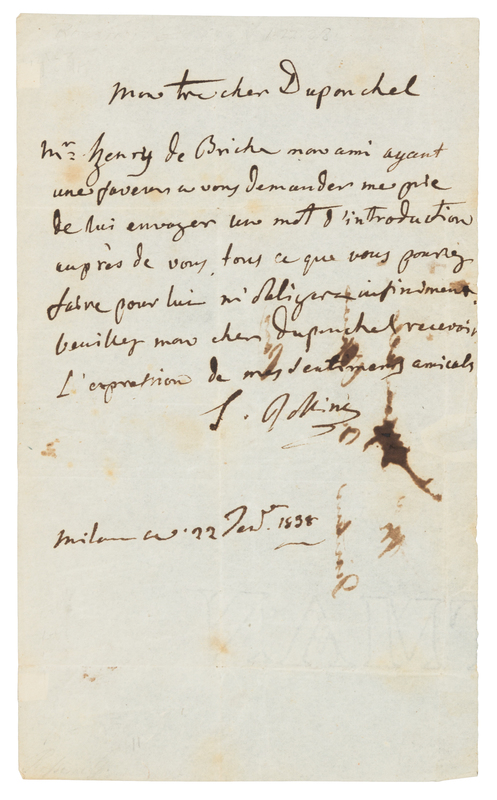 Mon tre cher Duponchel
Mr. Henry de Briche mon ami ayant
une faveur a vous demander me prie
de lui envoyer un mot d'introduction
auprès de vous, tous ce que vous pourez
faire pour lui m'obligera infiniment.
Veuillez mon cher Duponchel recevoir
L'expression de mes sentimens amicals
J. Rossini
Milan ce 22 1838